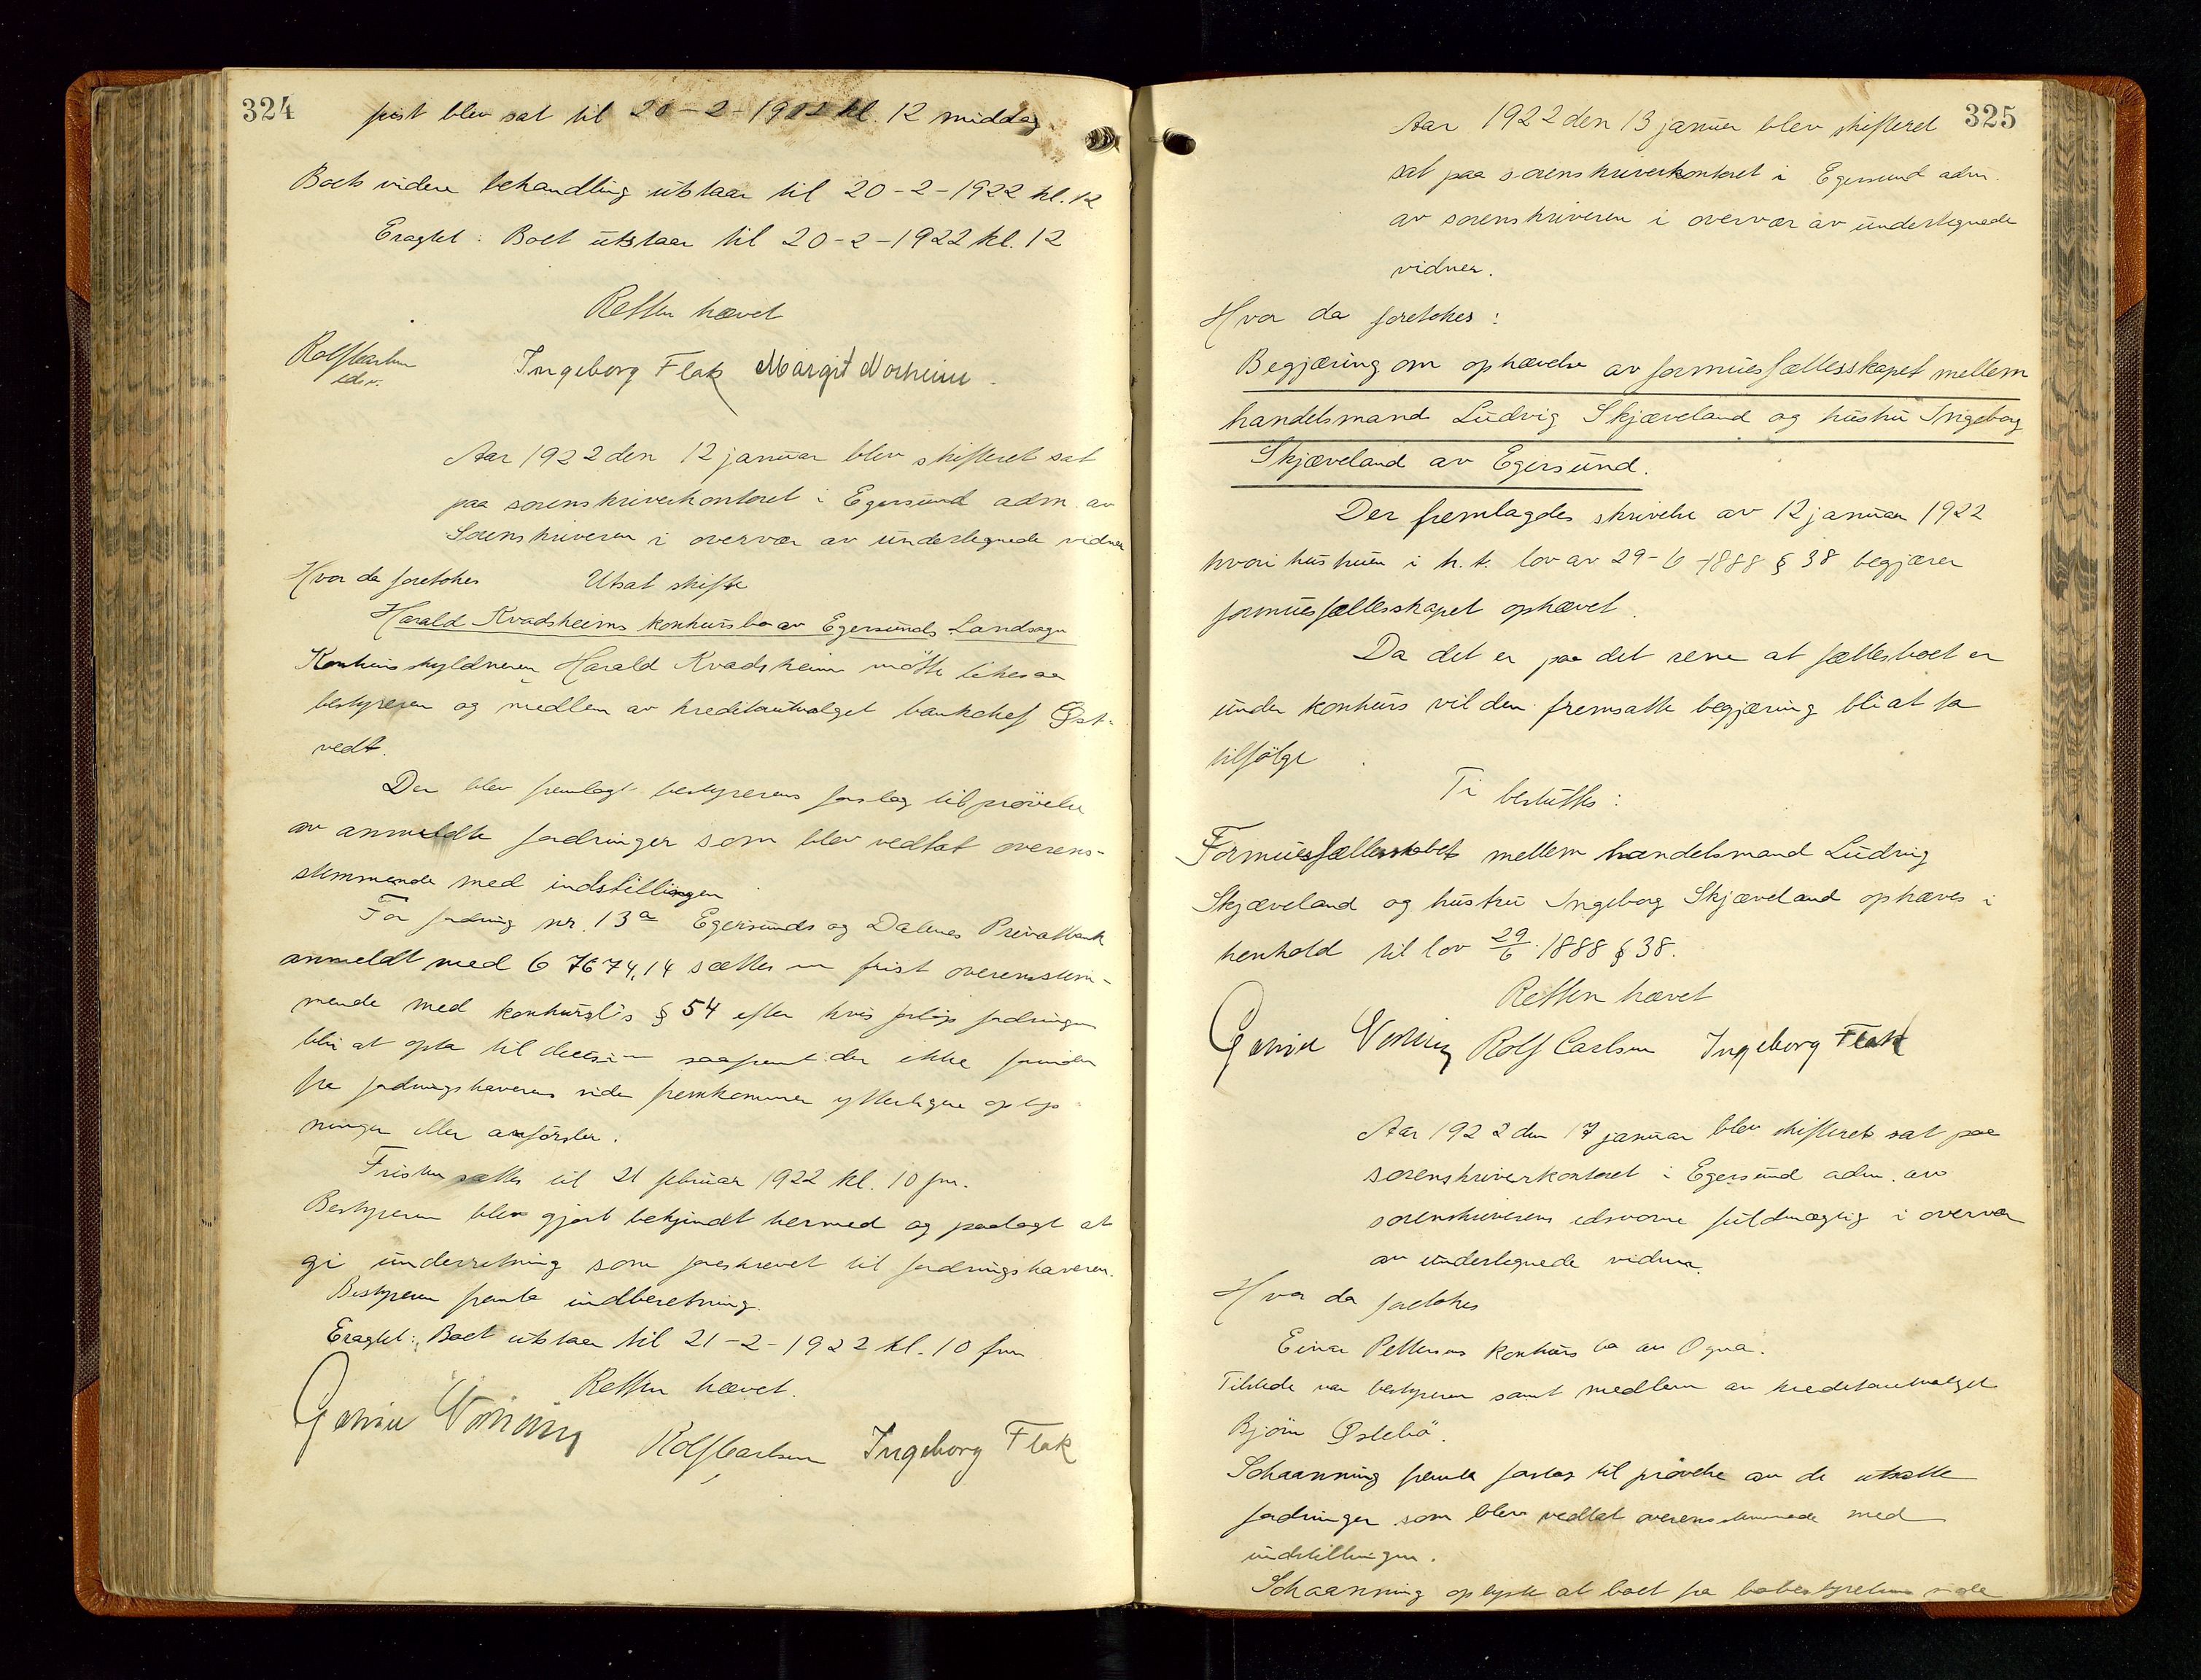 324
frist blev sat til 20-2-1922 kl. 12 middag
Boets videre behandling utstaar til 20-2-1922 kl. 12
Eragtet: Boet utstaar til 20-2-1922 kl. 12
Retten hævet
Rolf Carlsen
edsv.
Ingeborg Flak Margit Norheim.
Aar 1922 den 12 januar blev skifteret sat
paa sorenskriverkontoret i Egersund adm. av
Sorenskriveren i overvær av undertegnede vidner
Hvor da foretokes Utsat skifte
Harald Kvadsheims konkursbo av Egersunds Landsogn
Konkursskyldneren Harald Kvadsheim mötte likesaa
bestyreren og medlem av kreditorutvalget bankchef Øst-
vedt.
Der blev fremlagt bestyrerens forslag til prövelse
av anmeldte fordringer som blev vedtat overens-
stemmende med indstillingen
For fordring nr. 13a Egersunds og Dalenes Privatbank
anmeldt med 67674,14 sættes en frist overensstem-
mende med konkursl's § 54 efter hvis forløp fordringen
blir at opta til decision saafremt der ikke forinden
fra fordringshaverens side fremkommer ytterligere oplys-
ninger eller anförsler.
Fristen sættes til 21 februar 1922 kl. 10 fm.
Bestyreren blev gjort bekjendt hermed og paalagt at
gi underretning som foreskrevet til fordringshaveren.
Bestyreren fremla indberetning.
Eragtet: Boet utstaar til 21-2-1922 kl. 10 fm
Retten hævet.
Rolf Carlsen Ingeborg Flak
325
Aar 1922 den 13 januar blev skifteret
sat paa sorenskriverkontoret i Egersund adm.
av sorenskriveren i overvær av undertegnede
vidner.
Hvor da foretokes:
Begjæring om ophævelse av formuesfællesskapet mellem
handelsmand Ludvig Skjæveland og hustru Ingeborg
Skjæveland av Egersund.
Der fremlagdes skrivelse av 12 januar 1922
hvori hustruen i h.t. lov av 29-6-1888 § 38 begjærer
formuesfællesskapet ophævet.
Da det er paa det rene at fællesboet er
under konkurs vil den fremsatte begjæring bli at ta
tilfölge.
Ti besluttes:
Formuesfællesskabet mellem handelsmand Ludvig
Skjæveland og hustru Ingeborg Skjæveland ophæves i
henhold til lov 29/6 1888 § 38.
Retten hævet
Rolf Carlsen Ingeborg Flak
Aar 1922 den 17 januar blev skifteret sat paa
sorenskriverkontoret i Egersund adm. av
sorenskriverens edsvorne fuldmægtig i overvær
av undertegnede vidner.
Hvor da foretokes
Einar Pettersens konkurs bo av Ogna.
Tilstede var bestyreren samt medlem av kreditorutvalget
Bjørn Østebö.
Schaanning fremla forslag til prøvelse av de utsatte
fordringer som blev vedtat overensstemmende med
indstillingen.
Schaanning oplyste at boet fra bobestyrelsens side